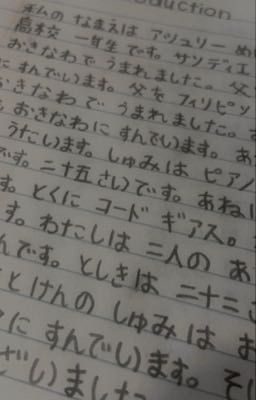 oduction
私の なまえは アシュリー め
高木交 一年生です。サンディエ
おきなわで うまれました。父
にすんでいます。父を フィリピッ
おきなわで うまれました。
おきなわに すんでいます。あ
うたいます。しゅみは ピアノ
です。二十五さいです。あねに
す。とくに コード ギアス。
す。わたしは 二人の あ
んです。としきは 二十二さ
とけんの しゅみは お
にすんでいます。そし
ざいました